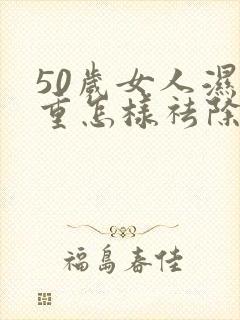 50歲女人濕
重怎樣祛除
福島春佳